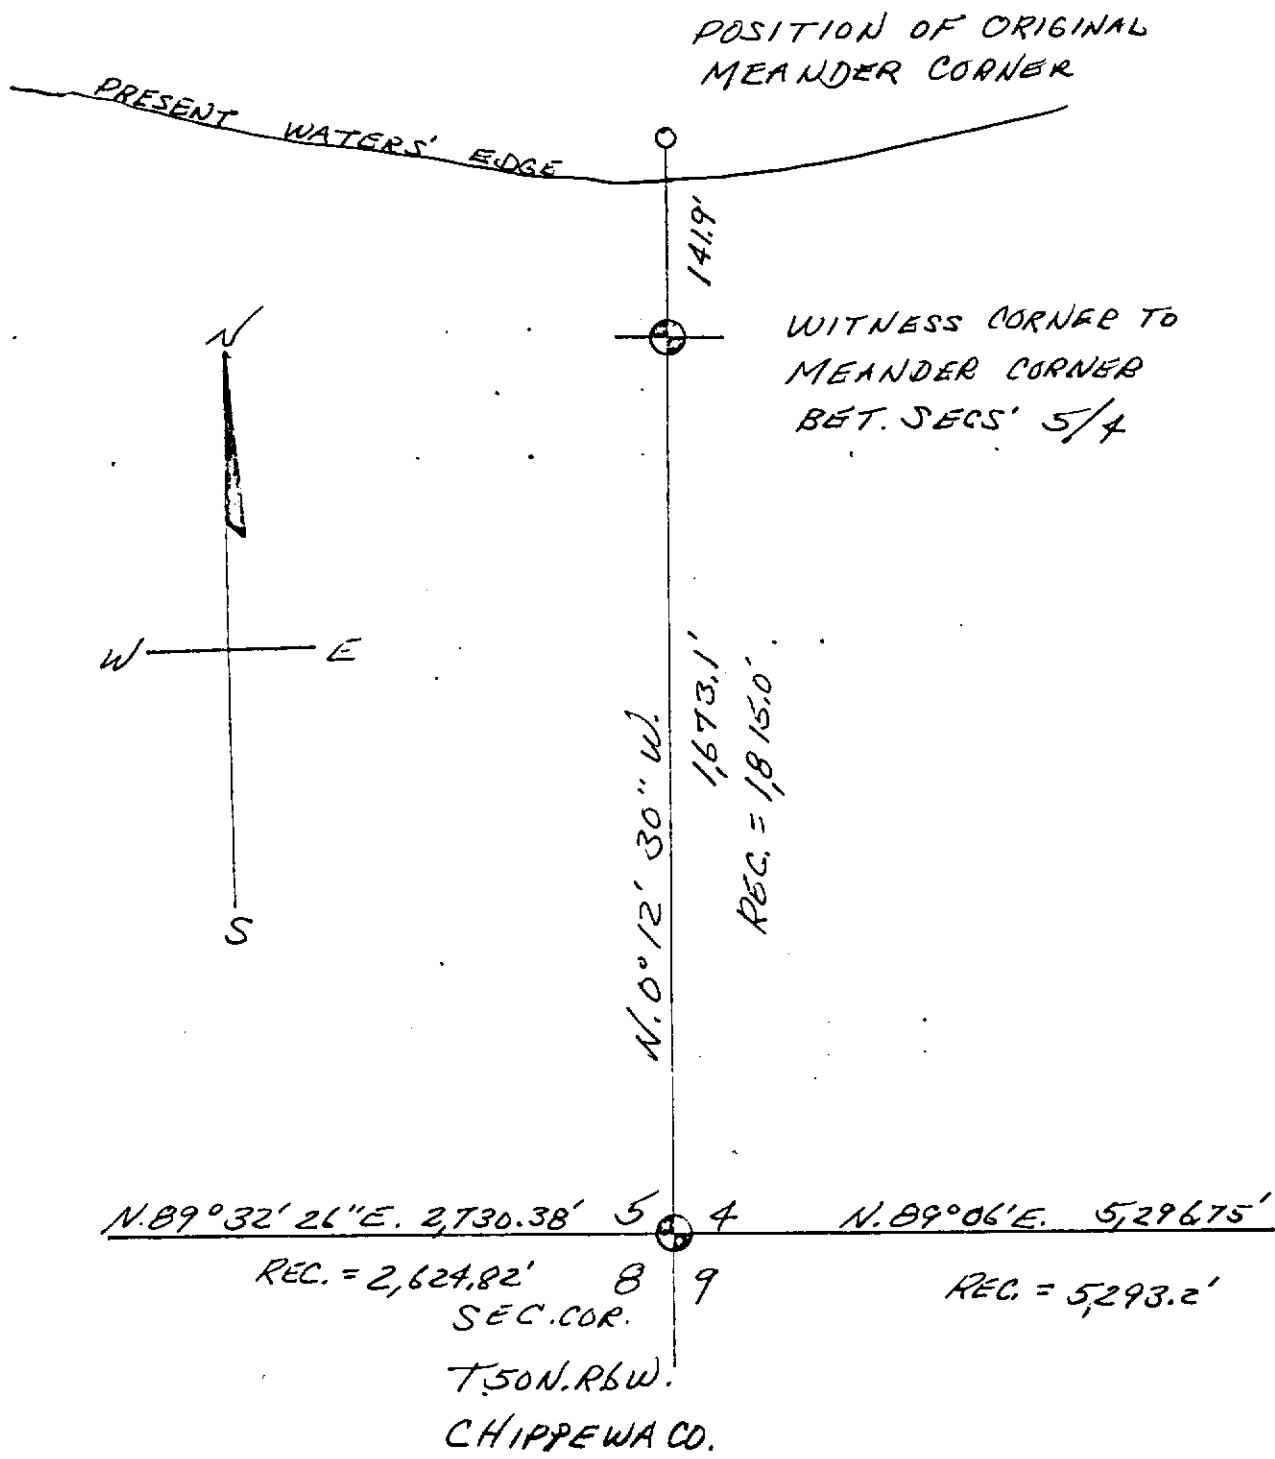 POSITION OF ORIGINAL
MEANDER CORNER
PRESENT WATERS' EDGE
141.9'
WITNESS CORNER TO
MEANDER CORNER
BET. SECS' 5/4
N
W E
S
N. 0° 12' 30" W.
1,673.1'
REC. = 1,815.0'
N. 89° 32' 26" E. 2,730.38' 5 4 N. 89° 06' E. 5,296.75'
REC. = 2,624.82' 8 9 REC. = 5,293.2'
SEC. COR.
T.50N. R6W.
CHIPPEWA CO.